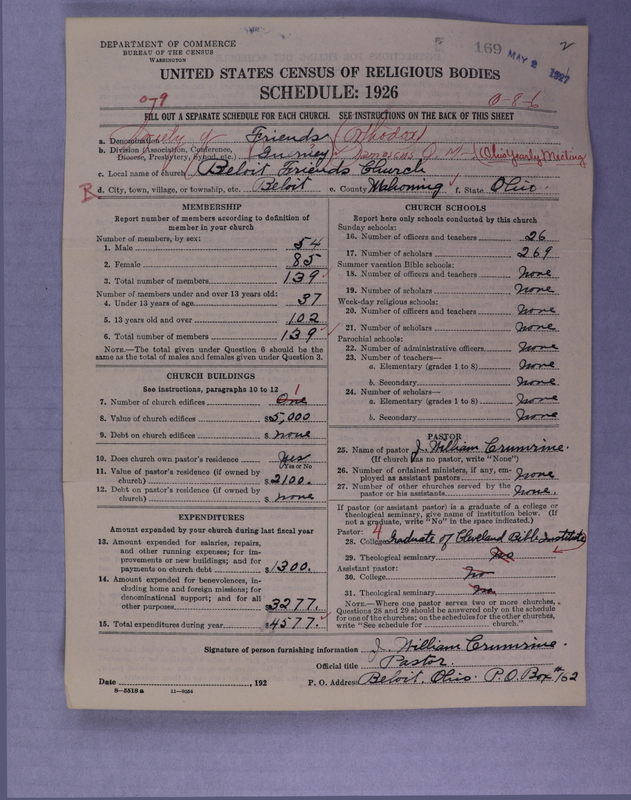 DEPARTMENT OF COMMERCE
BUREAU OF THE CENSUS
WASHINGTON
169
MAY 2 1927
2
UNITED STATES CENSUS OF RELIGIOUS BODIES
SCHEDULE: 1926
079
0-8-6
FILL OUT A SEPARATE SCHEDULE FOR EACH CHURCH. SEE INSTRUCTIONS ON THE BACK OF THIS SHEET
a. Denomination Society of Friends (Orthodox)
b. Division (Association, Conference, Diocese, Presbytery, Synod, etc.) Gurney (Ohio Yearly Meeting
c. Local name of church Beloit Friends Church
B
d. City, town, village, or township, etc. Beloit e. County Mahoning f. State Ohio.
MEMBERSHIP
Report number of members according to definition of
member in your church
Number of members, by sex:
1. Male 54
2. Female 85
3. Total number of members 139
Number of members under and over 13 years old:
4. Under 13 years of age 37
5. 13 years old and over 102
6. Total number of members 139
NOTE.—The total given under Question 6 should be the
same as the total of males and females given under Question 3.
CHURCH BUILDINGS
See instructions, paragraphs 10 to 12
7. Number of church edifices One 1
8. Value of church edifices $5,000
9. Debt on church edifices $ none
10. Does church own pastor's residence? Yes
Yes or No
11. Value of pastor's residence (if owned by
church) $2100.
12. Debt on pastor's residence (if owned by
church) $ none
EXPENDITURES
Amount expended by your church during last fiscal year
13. Amount expended for salaries, repairs,
and other running expenses; for im-
provements or new buildings; and for
payments on church debt $1300.
14. Amount expended for benevolences, in-
cluding home and foreign missions; for
denominational support; and for all
other purposes 3277.
15. Total expenditures during year $4577.
CHURCH SCHOOLS
Report here only schools conducted by this church
Sunday schools:
16. Number of officers and teachers 26
17. Number of scholars 269
Summer vacation Bible schools:
18. Number of officers and teachers none
19. Number of scholars none
Week-day religious schools:
20. Number of officers and teachers none
21. Number of scholars none
Parochial schools:
22. Number of administrative officers none
23. Number of teachers—
a. Elementary (grades 1 to 8) none
b. Secondary none
24. Number of scholars—
a. Elementary (grades 1 to 8) none
b. Secondary none
PASTOR
25. Name of pastor J. William Crumrine.
(If church has no pastor, write "None")
26. Number of ordained ministers, if any, em-
ployed as assistant pastors none
27. Number of other churches served by the
pastor or his assistants none.
If pastor (or assistant pastor) is a graduate of a college or
theological seminary, give name of institution below. (If
not a graduate, write "No" in the space indicated.)
Pastor: 4
28. College Graduate of Cleveland Bible Institute
29. Theological seminary no
Assistant pastor:
30. College no
31. Theological seminary no
NOTE.—Where one pastor serves two or more churches,
Questions 28 and 29 should be answered only on the schedule
for one of the churches; on the schedules for the other churches,
write "See schedule for church."
Signature of person furnishing information J. William Crumrine.
Official title Pastor.
Date , 192 P. O. Address Beloit, Ohio. P.O. Box #162
8—5518 a 11—9054